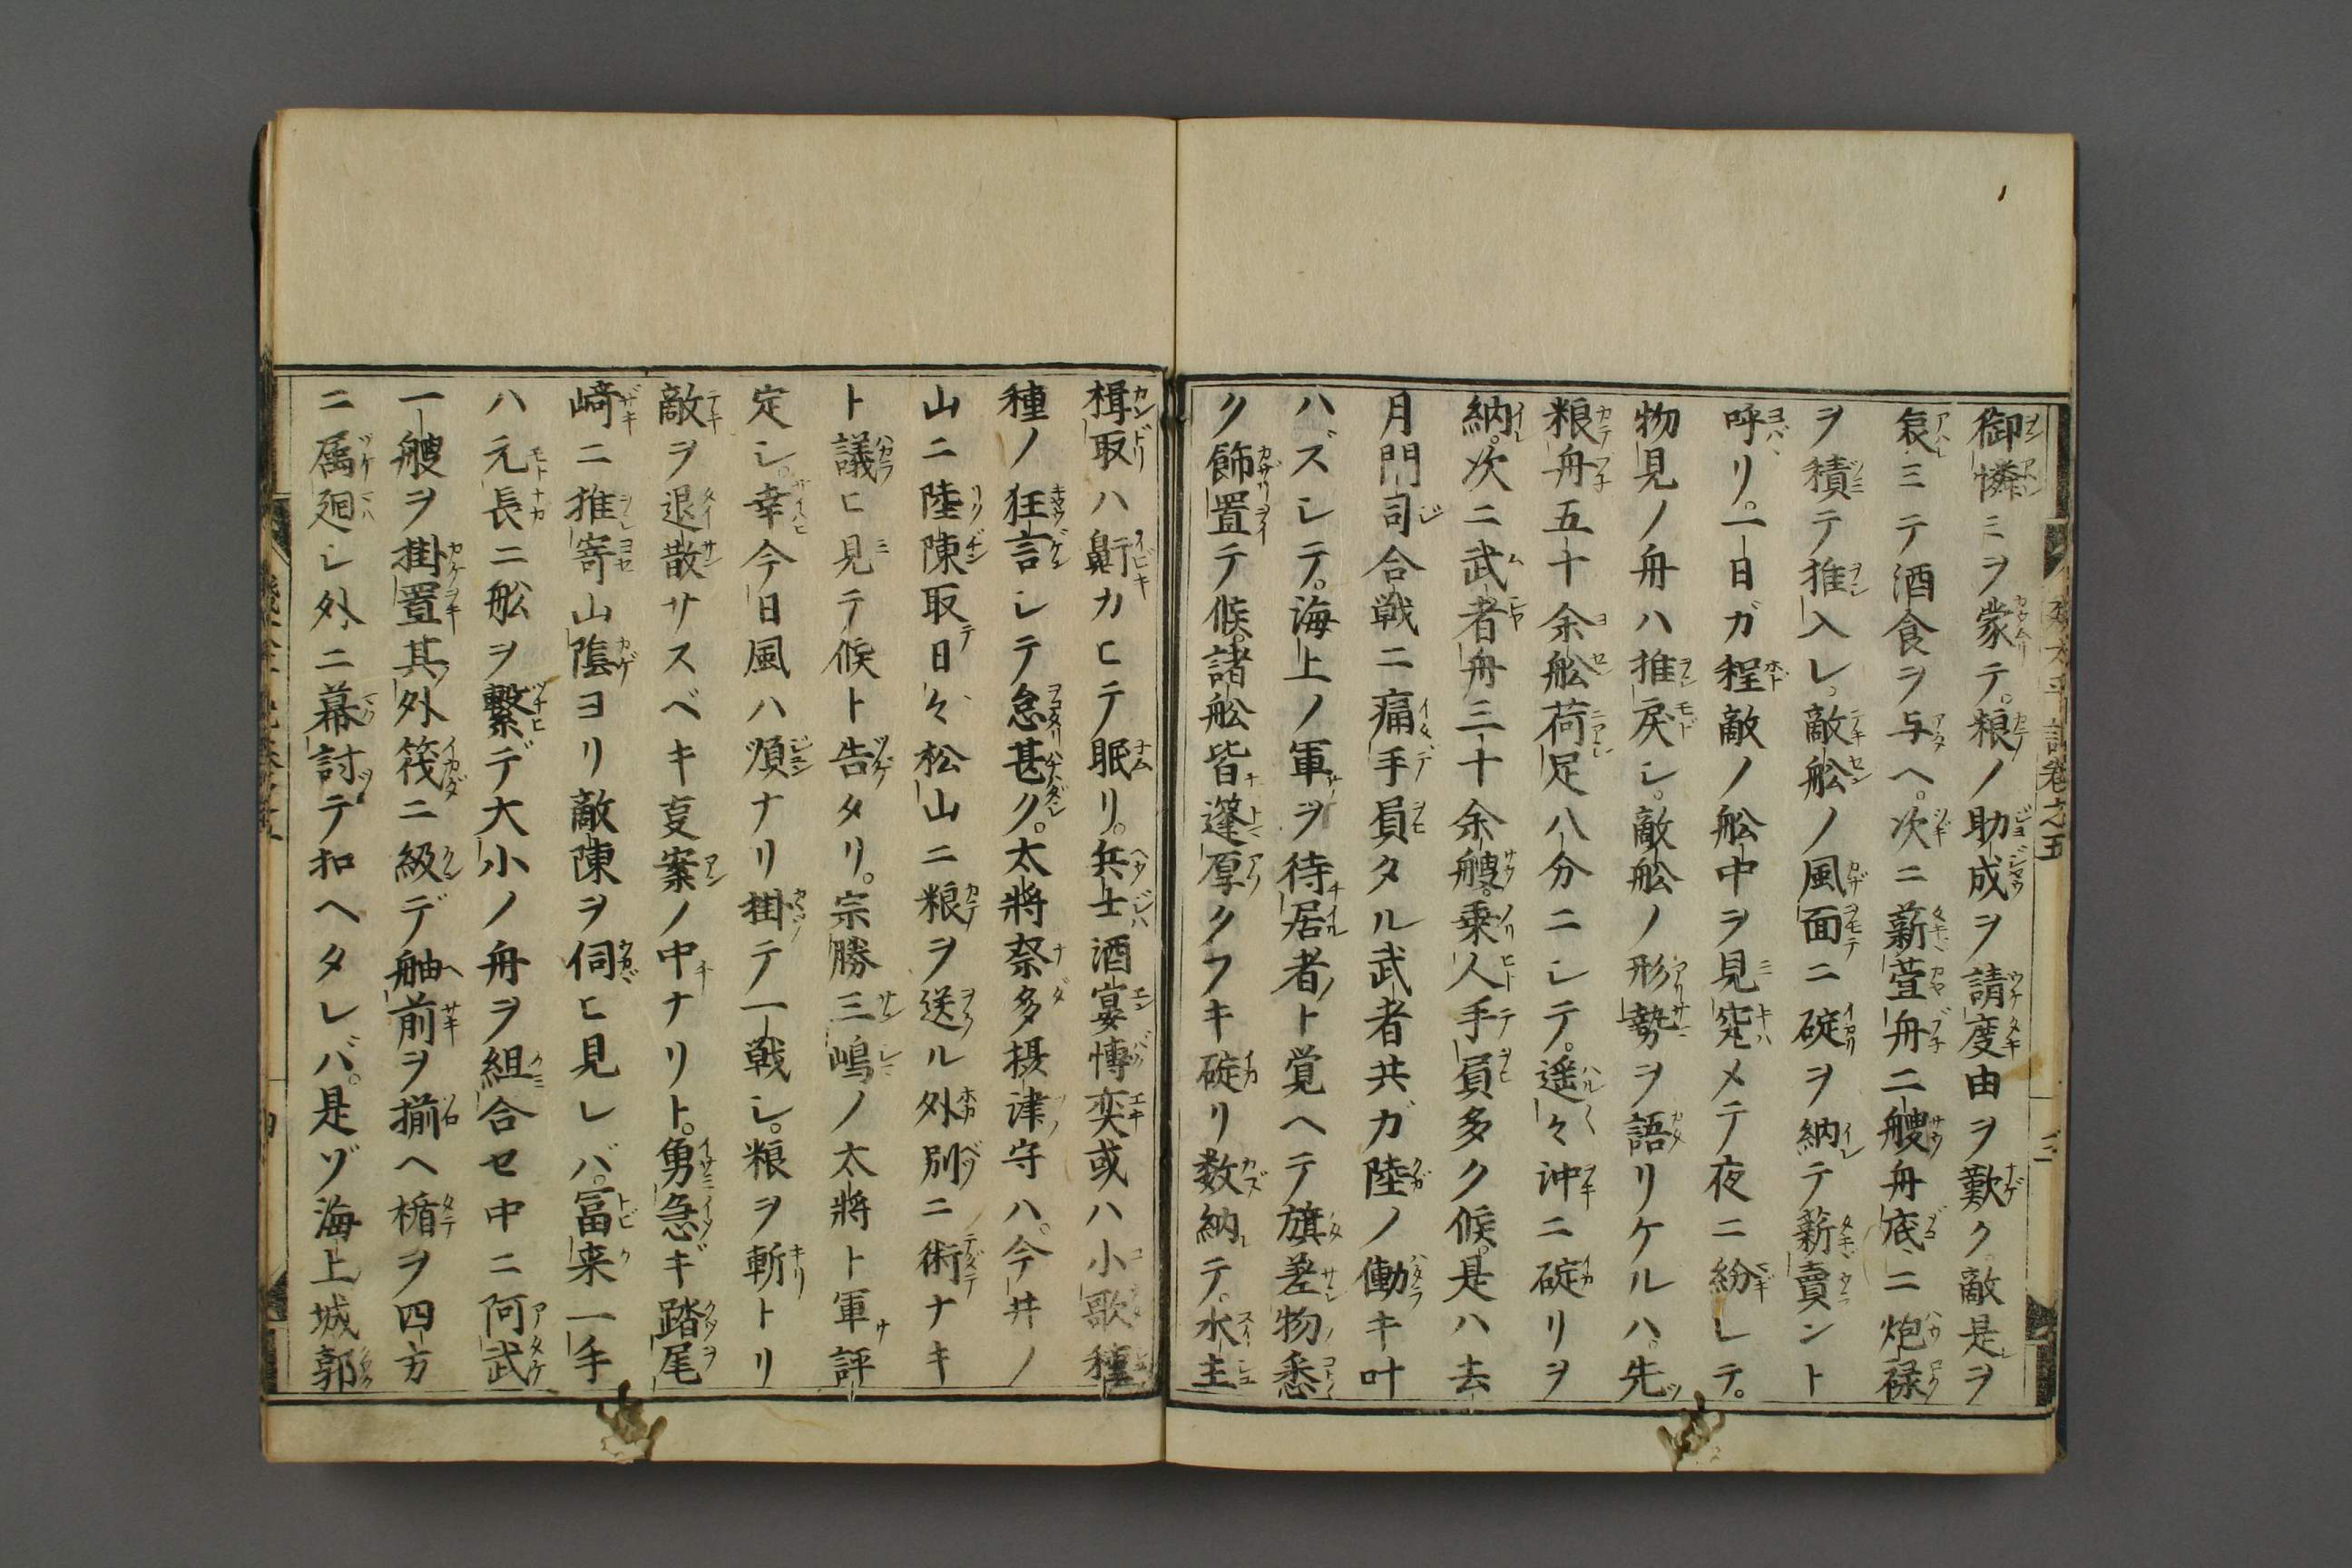 御憐ミヲ蒙テ。粮ノ助成ヲ請度由ヲ歎ク。敵是ヲ
哀ミテ酒食ヲ与ヘ。次ニ薪萱舟二艘舟底ニ炮禄
ヲ積テ推入レ。敵舩ノ風面ニ碇ヲ納テ薪賣ント
呼リ。一日ガ程敵ノ舩中ヲ見究メテ夜ニ紛レテ。
物見ノ舟ハ推戻シ。敵舩ノ形勢ヲ語リケルハ。先
粮舟五十余舩荷足八分ニシテ。遥々沖ニ碇リヲ
納。次ニ武者舟三十余艘。乗人手負多ク候。是ハ去
月門司合戦ニ痛手負タル武者共ガ陸ノ働キ叶
ハズシテ。海上ノ軍ヲ待居者ト覚ヘテ旗差物悉
ク飾置テ候。諸舩皆篷厚クフキ碇リ数納テ。水主
楫取ハ鼾カヒテ眠リ。兵士酒宴愽奕或ハ小歌種
種ノ狂言シテ怠甚ク。太將奈多摂津守ハ。今井ノ
山ニ陸陳取日々松山ニ粮ヲ送ル外別ニ術ナキ
ト議ヒ見テ候ト告タリ。宗勝三嶋ノ太將ト軍評
定シ。幸今日風ハ順ナリ掛テ一戦シ。粮ヲ斬トリ
敵ヲ退散サスベキ叓案ノ中ナリト。勇急ギ踏尾
﨑ニ推寄山陰ヨリ敵陳ヲ伺ヒ見レバ。冨来一手
ハ元長ニ舩ヲ繋デ大小ノ舟ヲ組合セ中ニ阿武
一艘ヲ掛置其外筏ニ級デ舳前ヲ揃ヘ楯ヲ四方
ニ属廻シ外ニ幕討テ扣ヘタレバ。是ゾ海上城郭